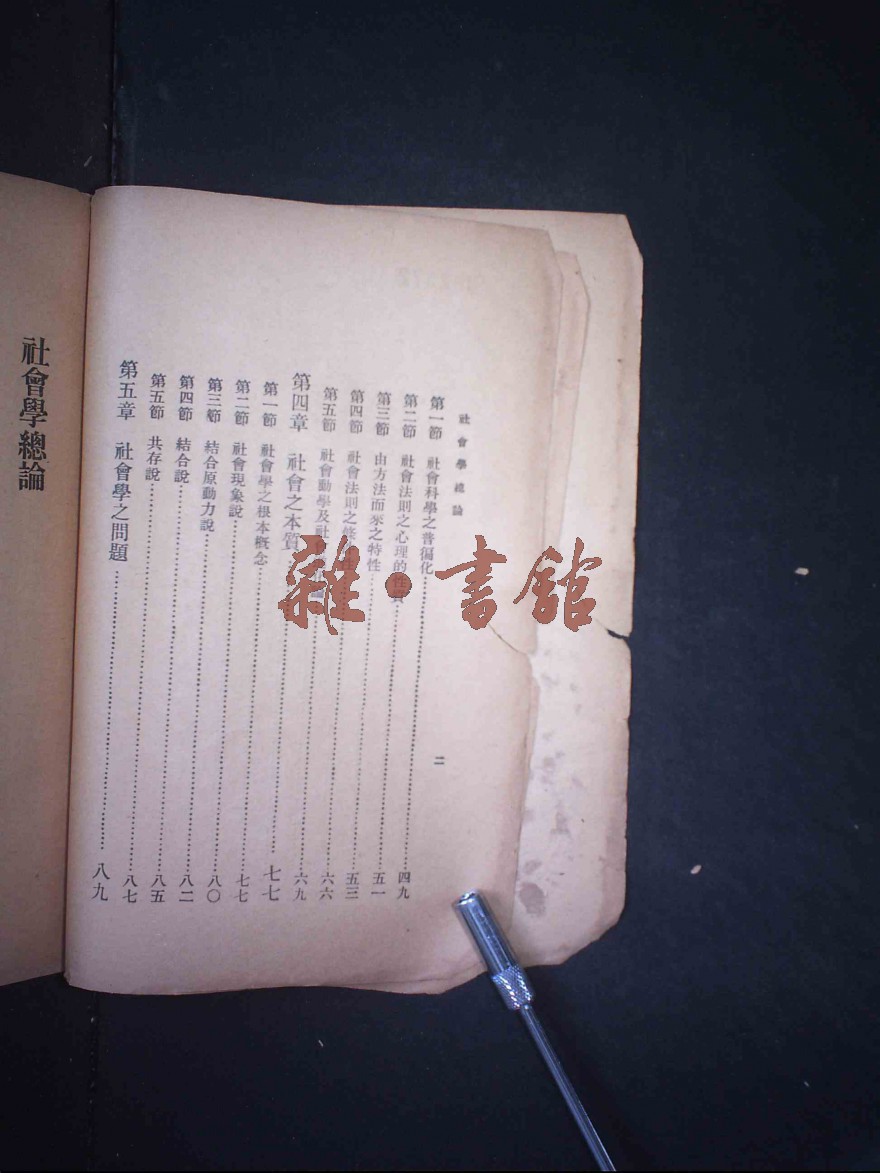 社會學總論
二
第一節 社會科學之普徧化……四九
第二節 社會法則之心理的性質……五一
第三節 由方法而来之特性……五三
第四節 社會法則之……六六
第五節 社會動學及社……六九
第四章 社會之本質……七七
第一節 社會學之根本概念……七七
第二節 社會現象說……八〇
第三節 結合原動力說……八二
第四節 結合說……八五
第五節 共存說……八七
第五章 社會學之問題……八九
社會學總論
雜·書館